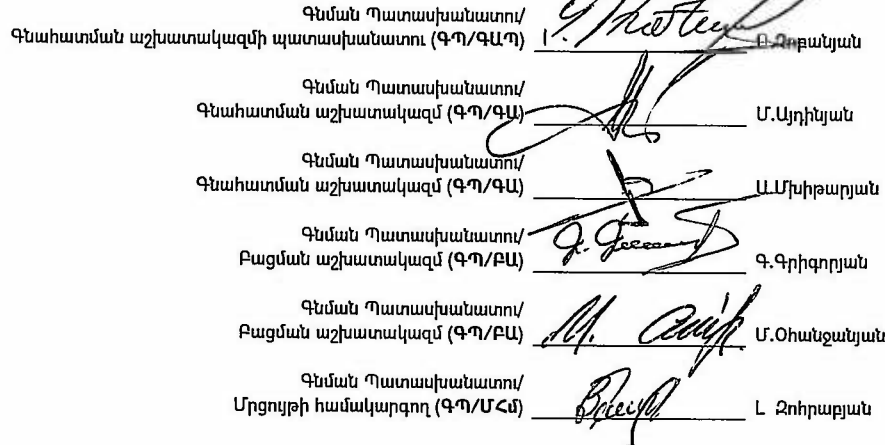 Գնման Պատասխանատու/
Գնահատման աշխատակազմի պատասխանատու (ԳՊ/ԳԱՊ) Օ.Չոբանյան
Գնման Պատասխանատու/
Գնահատման աշխատակազմ (ԳՊ/ԳԱ) Մ.Այդինյան
Գնման Պատասխանատու/
Գնահատման աշխատակազմ (ԳՊ/ԳԱ) Ա.Մխիթարյան
Գնման Պատասխանատու/
Բացման աշխատակազմ (ԳՊ/ԲԱ) Գ.Գրիգորյան
Գնման Պատասխանատու/
Բացման աշխատակազմ (ԳՊ/ԲԱ) Մ.Օհանջանյան
Գնման Պատասխանատու/
Մրցույթի համակարգող (ԳՊ/ՄՀմ) Լ Զոհրաբյան